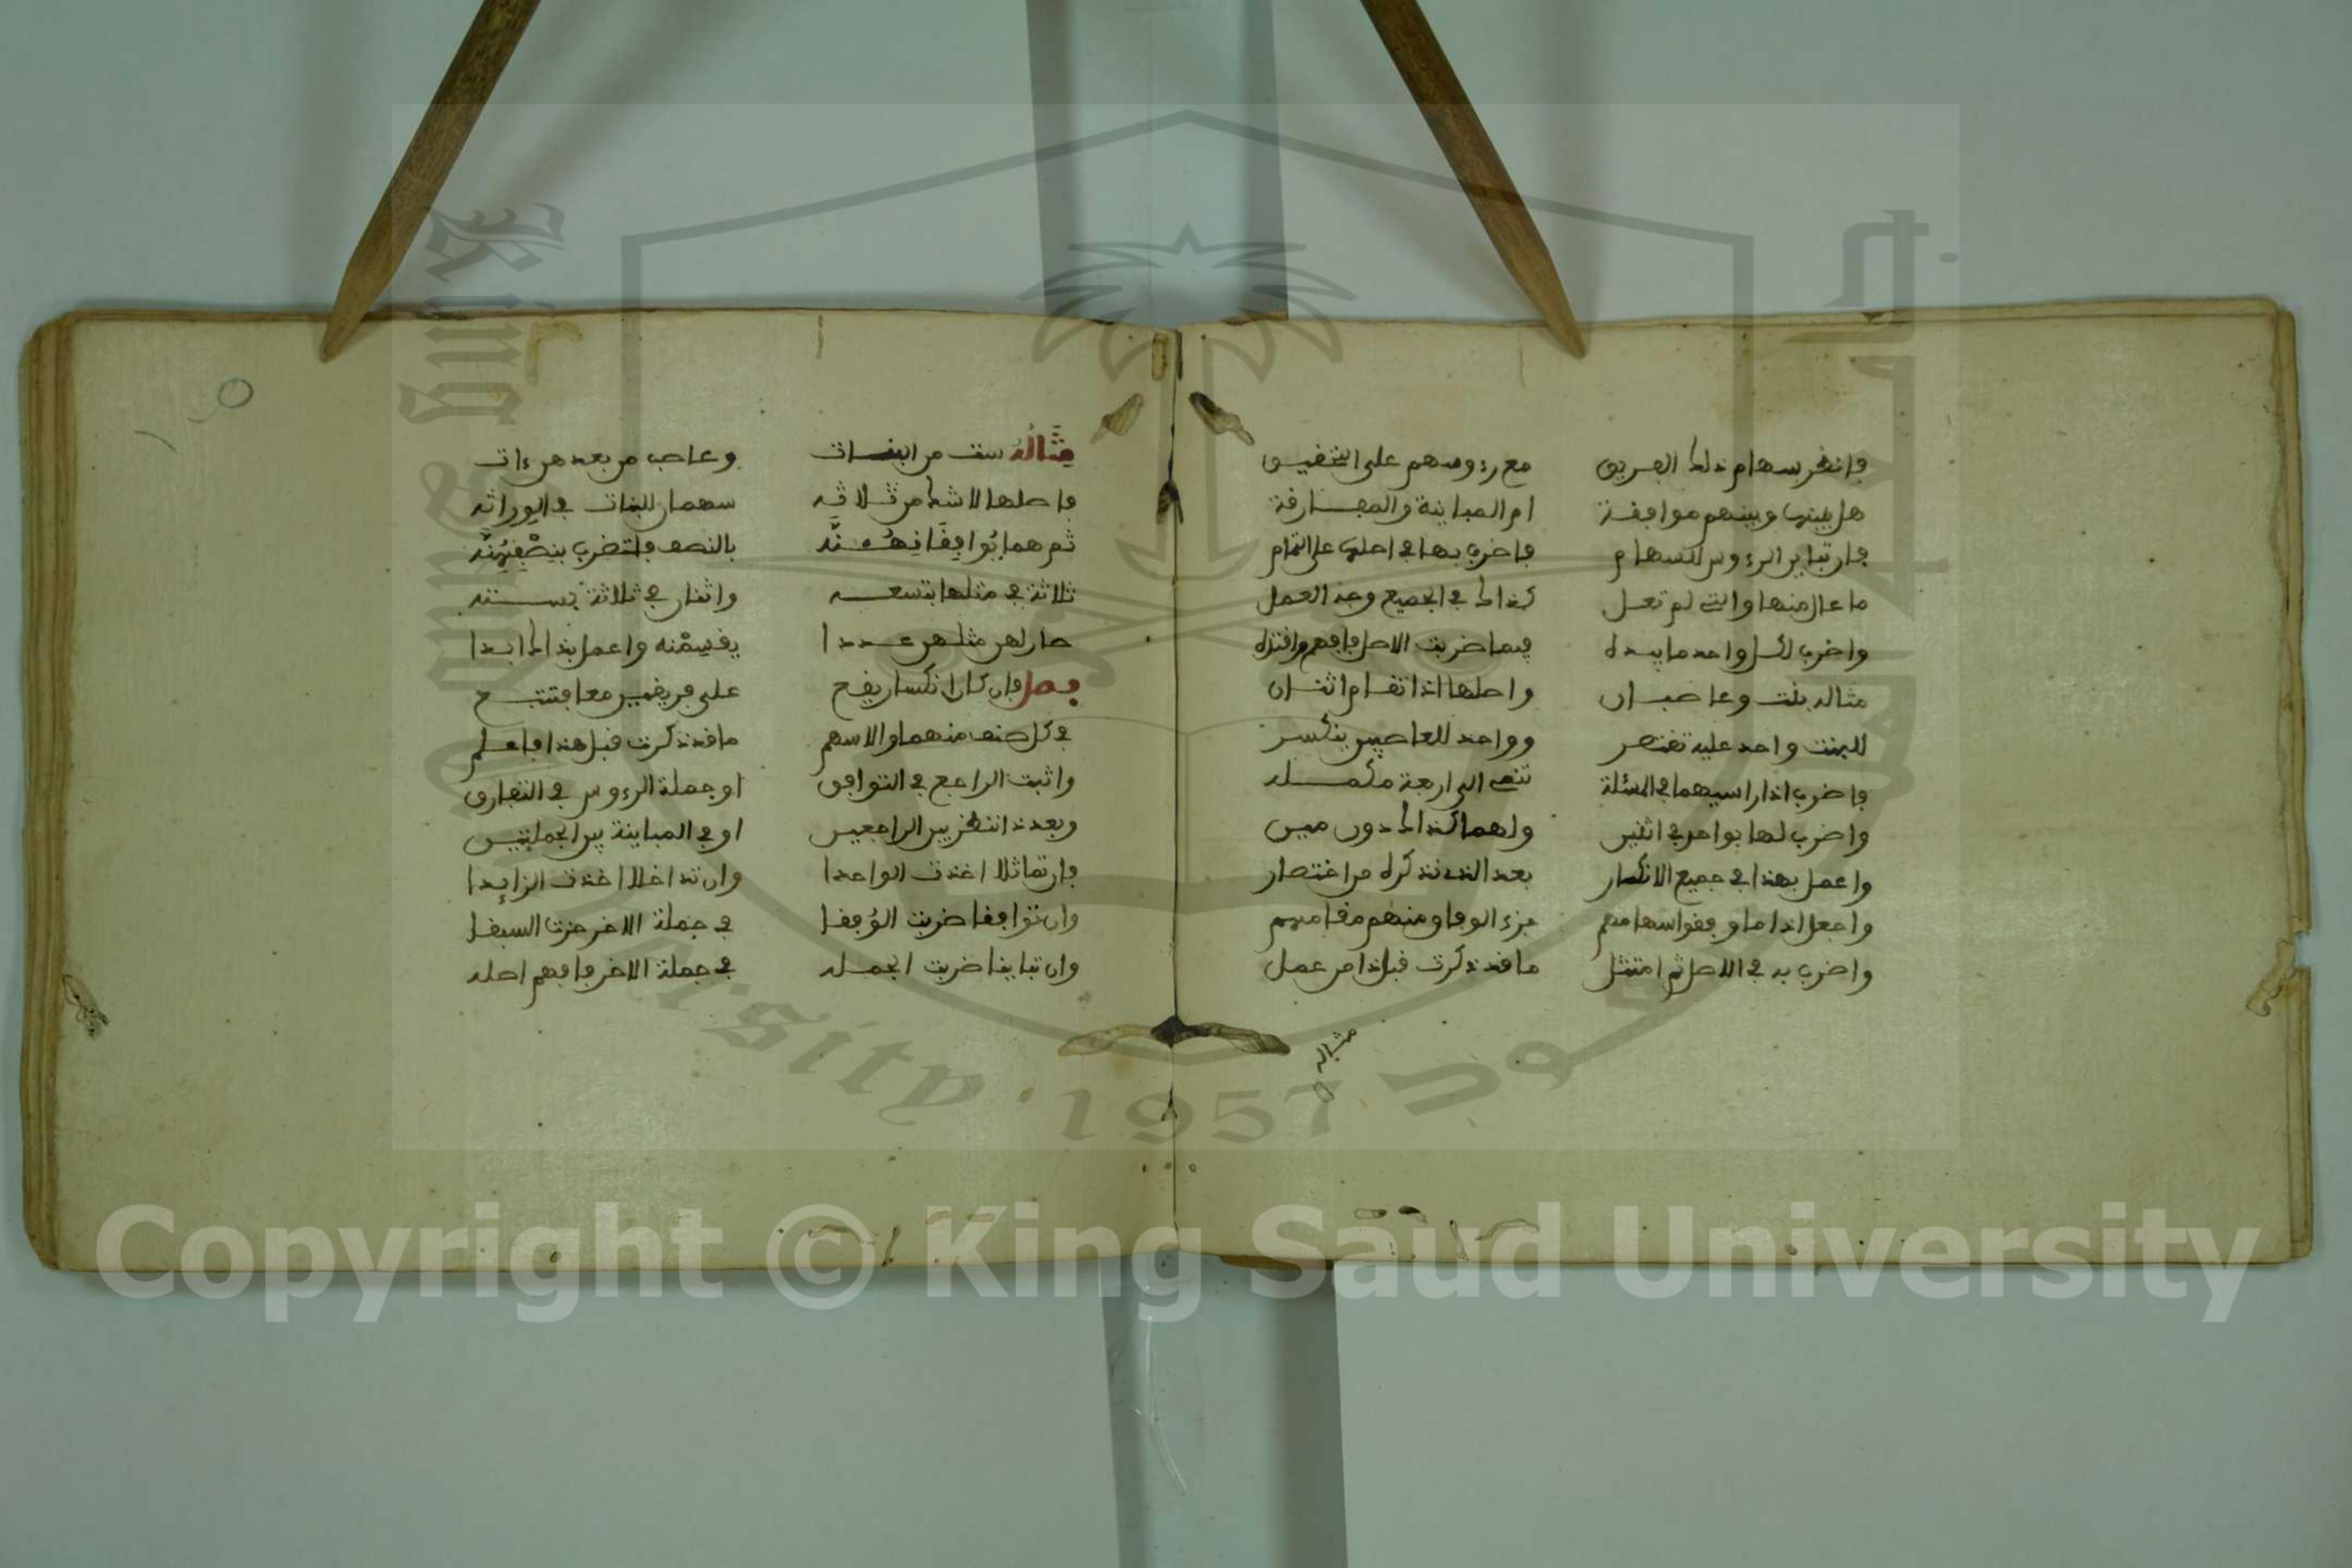 فانظر سهام ذلك الفريق مع رءوسهم على التحقيق
هل بينها وبينهم موافقة ام المباينة والمفارقة
فإن تباين الرءوس السهام فاضرب بها في اصلها على التمام
ما عال منها والتي لم تعل كذاك في الجميع وجه العمل
واضرب لكل واحد ما بيده فيما ضربت الاصل فافهم واقتده
مثاله بنت وعاصبان واصلها اذا تقام اثنان
للبنت واحد عليه تقتصر وواحد للعاصبين ينكسر
فاضرب اذا راسيهما في المسئلة تنتهي الى اربعة مكمله
واضرب لها بواحد في اثنين ولهما كذاك دون مين
واعمل بهذا في جميع الانكسار بعد الذي نذكره من اختصار
واجعل اذا ما وافقوا سهامهم جزء الوفاق منهم مقامهم
واضرب به في الاصل ثم امتثل ما قد ذكرت قبل ذا من عمل
مثاله
مثاله ست من البنات وعاصب من بعد هن ءات
فاصلها لا شك من ثلاثه سهمان للبنات في الوراثه
ثم هما يوافقانهنه بالنصف فلتضرب بنصفهنه
ثلاثة في مثلها بتسعه واثنان في ثلاثة بسته
صار لهن مثلهن عددا يقسمنه واعمل بذاك ابدا
فصل وان كان انكسار يقع على فريقين معا فتتبع
في كل صنف منهما والاسهم ما قد ذكرت قبل هذا فاعلم
واثبت الراجع في التوافق او جملة الرءوس في التفارق
وبعد ذا انظر بين الراجعين او في المباينة بين الجملتين
فإن تماثلا اخذت الواحدا وان تداخلا اخذت الزايدا
وان توافقا ضربت الوفقا في جملة الاخر حزت السبقا
وان تباينا ضربت الجمله في جملة الاخر فافهم اصله
Copyright © King Saud University
1957